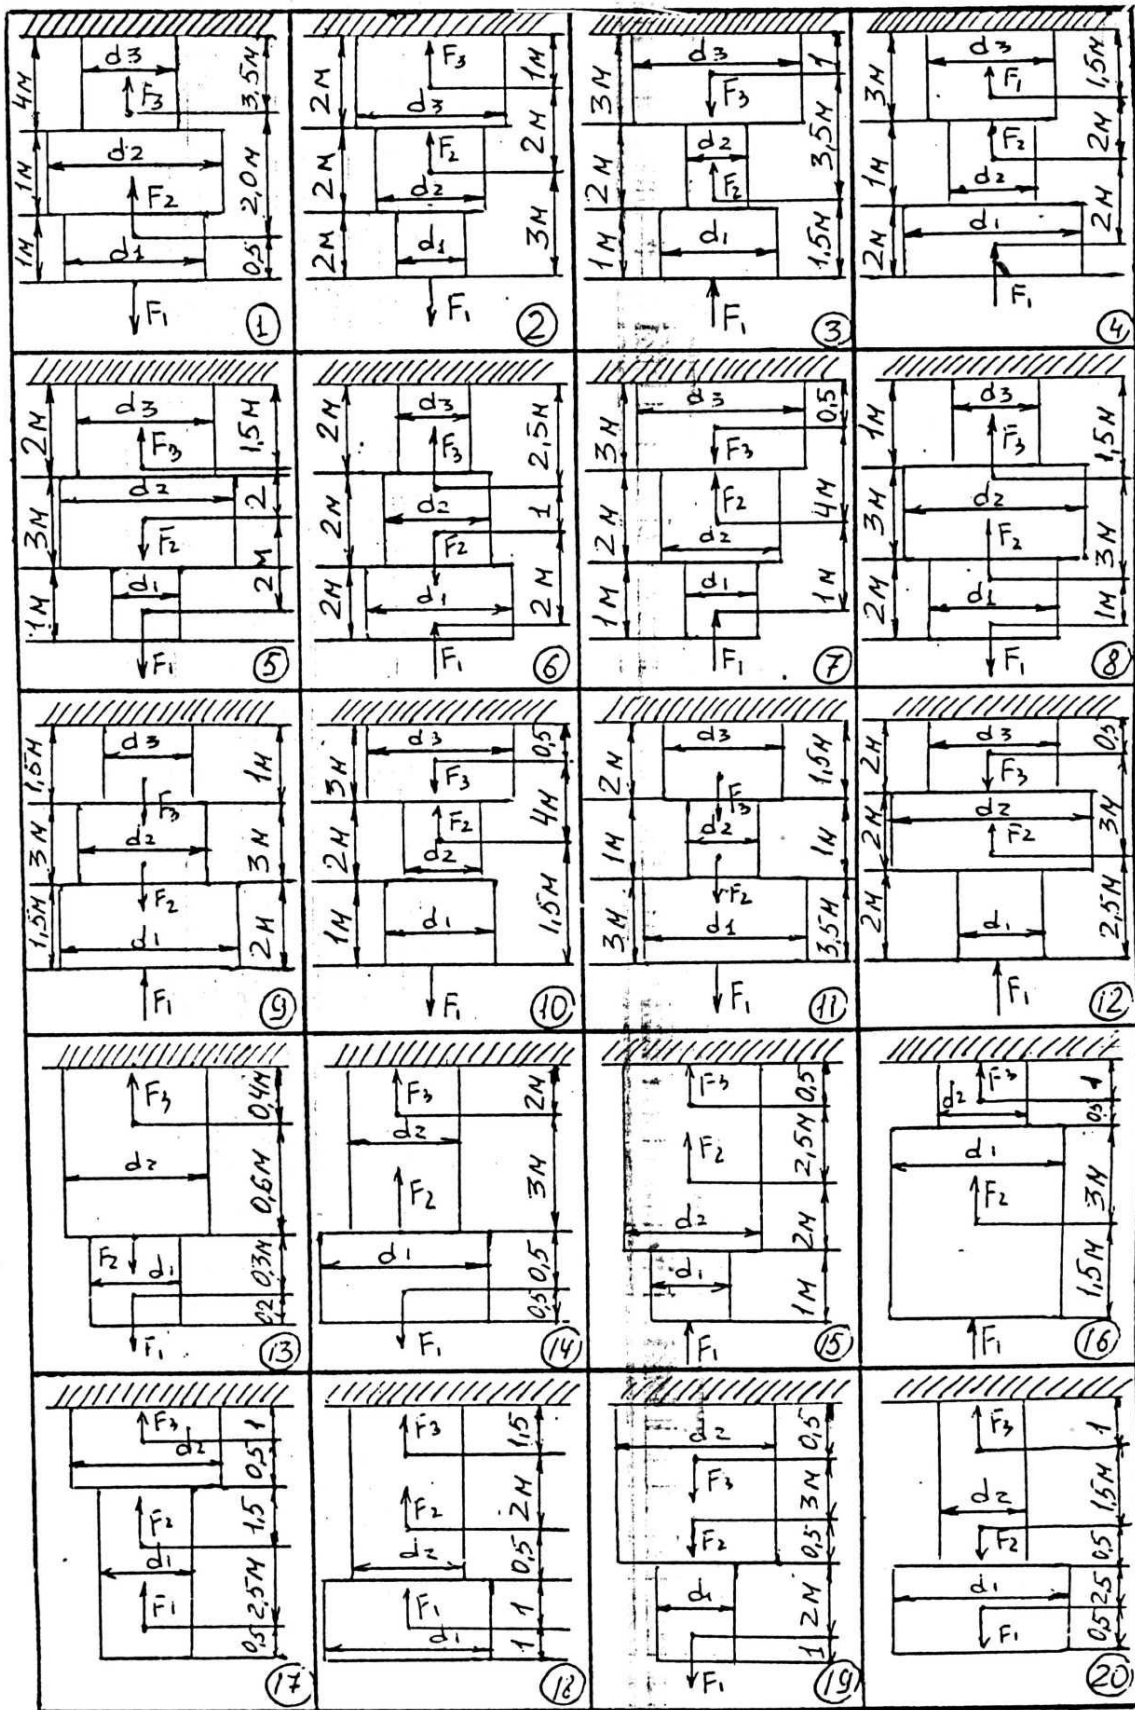 4м
1м
1м
d3
F3
d2
F2
d1
F1
3,5м
2,0м
0,5
1
2м
2м
2м
F3
d3
F2
d2
d1
F1
1м
2м
3м
2
3м
2м
1м
d3
F3
d2
F2
d1
F1
1
3,5м
1,5м
3
3м
1м
2м
d3
F1
F2
d2
d1
F1
1,5м
2м
2м
4
2м
3м
1м
d3
F3
d2
F2
d1
F1
1,5м
2
2м
5
2м
2м
2м
d3
F3
d2
F2
d1
F1
2,5м
1
2м
6
3м
2м
1м
d3
F3
F2
d2
d1
F1
0,5
4м
1м
7
1м
3м
2м
d3
F3
d2
F2
d1
F1
1,5м
3м
1м
8
1,5м
3м
1,5м
d3
F3
d2
F2
d1
F1
1м
3м
2м
9
3м
2м
1м
d3
F3
F2
d2
d1
F1
0,5
4м
1,5м
10
2м
1м
3м
d3
F3
d2
F2
d1
F1
1,5м
1м
3,5м
11
2м
2м
2м
d3
F3
d2
F2
d1
F1
0,5
3м
2,5м
12
F3
d2
F2
d1
F1
0,4м
0,6м
0,3м
0,2
13
F3
d2
F2
d1
F1
2м
3м
0,5
0,5
14
F3
F2
d2
d1
F1
0,5
2,5м
2м
1м
15
F3
d2
d1
F2
F1
1
0,5
3м
1,5м
16
F3
d2
F2
d1
F1
1
0,5
1,5
2,5м
0,5
17
F3
F2
d2
F1
d1
1,5
2м
0,5
1
1
18
d2
F3
F2
d1
F1
0,5
3м
0,5
2м
1
19
F3
d2
F2
d1
F1
1
1,5м
0,5
2,5
0,5
20